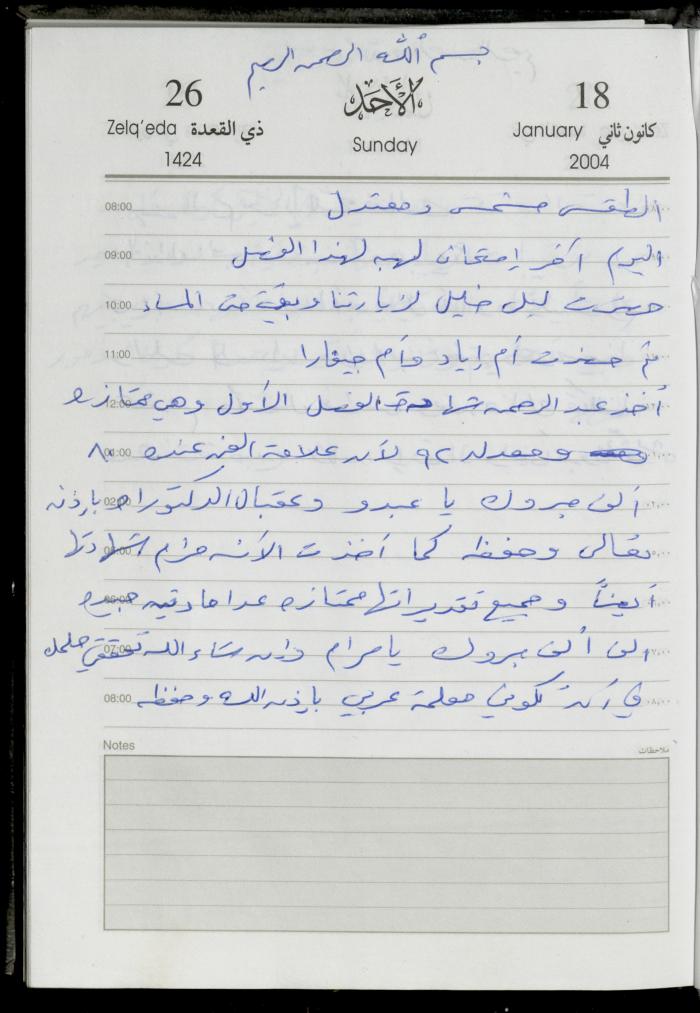 بسم الله الرحمن الرحيم
26 الأحد 18
Zelq'eda ذي القعدة Sunday January كانون ثاني
1424 2004
08:00 الطقس مشمس ومعتدل
09:00 اليوم آخر إمتحان لهبه لهذا الفصل
10:00 حضرت ليلى خليل لزيارتنا وبقيت حتى المساء
11:00 ثم حضرت أم إياد وأم جيفارا
12:00 أخذ عبد الرحمن شهادة الفصل الأول وهي ممتازه
01:00 ومعدله ٩٢ لأن علامة الفن عنده ٨٠
02:00 ألف مبروك يا عبدو وعقبال الدكتوراه بإذنه
تعالى وحفظه كما أخذت الآنسه مرام شهادتها
06:00 أيضاً وجميع تقديراتها ممتازه عدا مادتين جيده
07:00 ألف ألف مبروك يا مرام وإن شاء الله تحققي حلمك
08:00 في أن تكوني معلمة عربي بإذن الله وحفظه
Notes ملاحظات